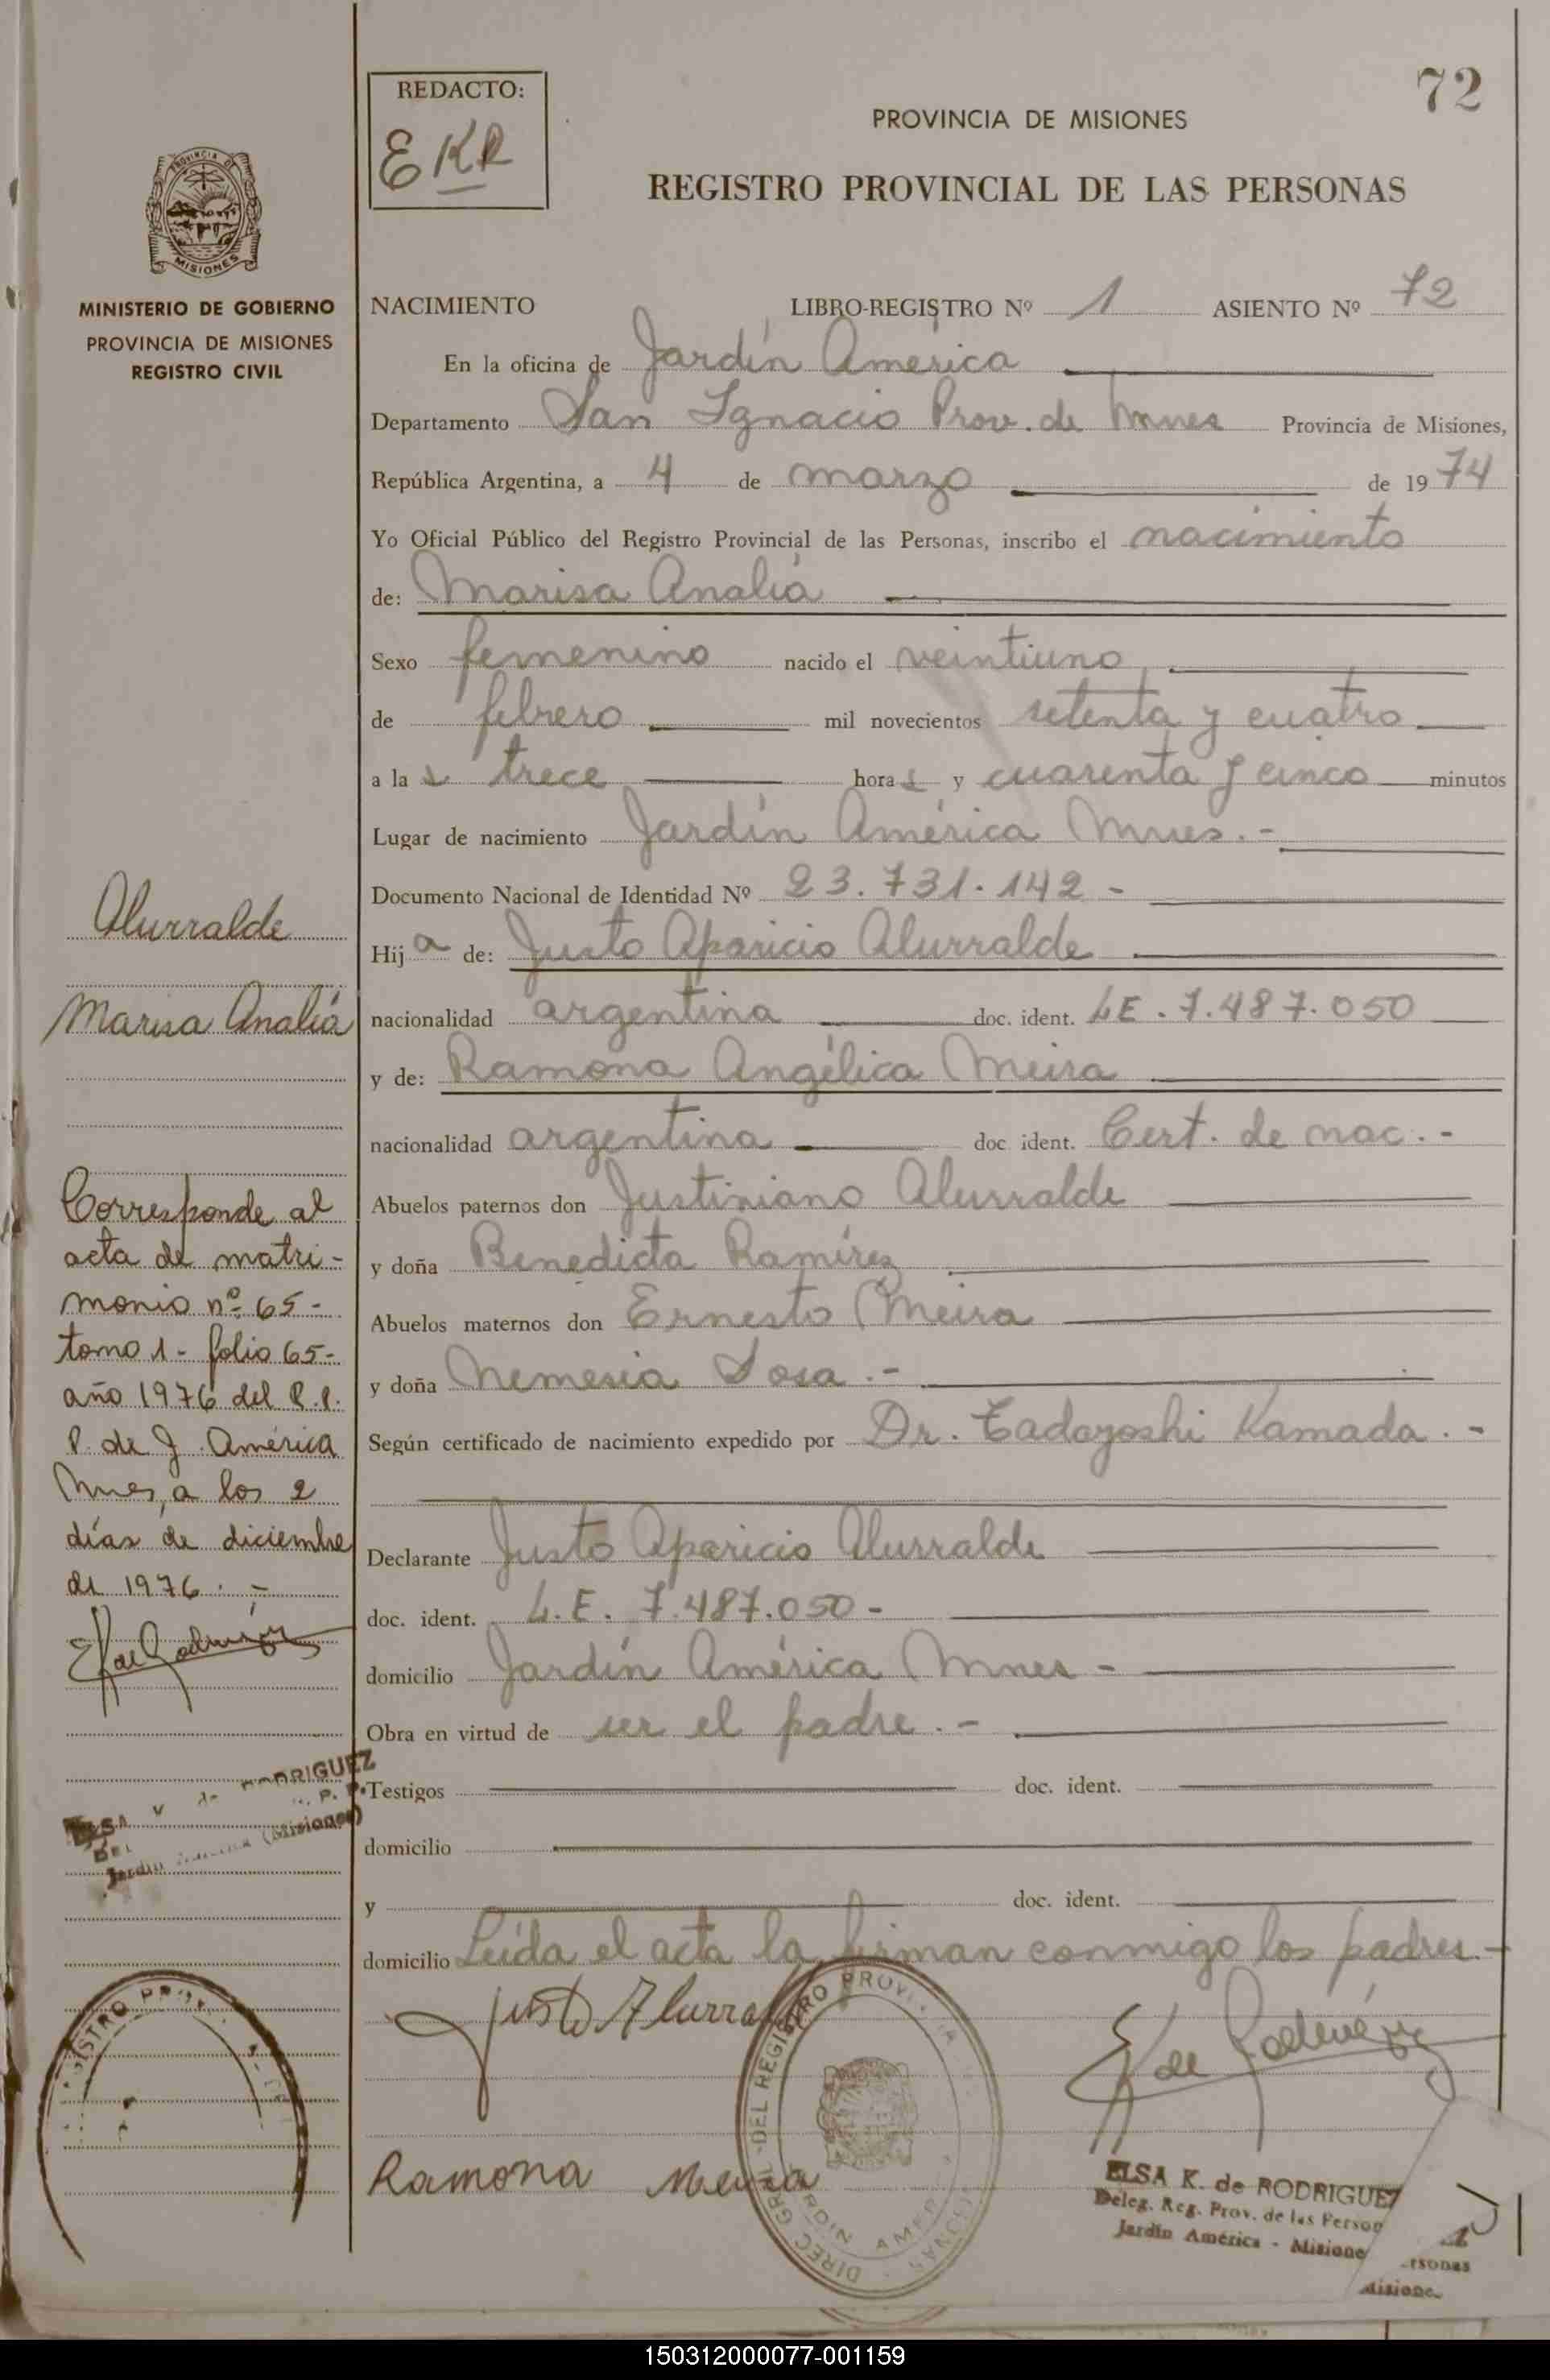 72
REDACTO:
EKR
PROVINCIA DE MISIONES
REGISTRO PROVINCIAL DE LAS PERSONAS
PROVINCIA DE
MISIONES
MINISTERIO DE GOBIERNO
PROVINCIA DE MISIONES
REGISTRO CIVIL
NACIMIENTO LIBRO-REGISTRO Nº 1 ASIENTO Nº 72
En la oficina de Jardín América
Departamento San Ignacio Prov. de Mnes Provincia de Misiones,
República Argentina, a 4 de marzo de 1974
Yo Oficial Público del Registro Provincial de las Personas, inscribo el nacimiento
de: Marisa Analía
Sexo femenino nacido el veintiuno
de febrero mil novecientos setenta y cuatro
a las trece horas y cuarenta y cinco minutos
Lugar de nacimiento Jardín América Mnes.-
Documento Nacional de Identidad Nº 23.731.142-
Hija de: Justo Aparicio Alurralde
nacionalidad argentina doc. ident. LE. 7.487.050
y de: Ramona Angélica Meira
nacionalidad argentina doc. ident. Cert. de nac.-
Abuelos paternos don Justiniano Alurralde
y doña Benedicta Ramírez
Abuelos maternos don Ernesto Meira
y doña Nemesia Sosa.-
Según certificado de nacimiento expedido por Dr. Tadayoshi Kamada.-
Declarante Justo Aparicio Alurralde
doc. ident. L.E. 7.487.050-
domicilio Jardín América Mnes-
Obra en virtud de ser el padre.-
Testigos doc. ident.
domicilio
y doc. ident.
domicilio Leída el acta la firman conmigo los padres.-
Justo Alurral
E K de Rodríguez
Ramona Meira
DIREC. GRAL. DEL REGISTRO PROVINCIAL
JARDIN AMERICA
ELSA K. de RODRIGUEZ
Deleg. Reg. Prov. de las Person
Jardín América - Misione
rsonas
Misione
Alurralde
Marisa Analía
Corresponde al
acta de matri-
monio nº 65-
tomo 1- folio 65-
año 1976 del R.P.
P. de J. América
Mnes, a los 2
días de diciembre
de 1976.-
E K de Rodríguez
ELSA K de RODRIGUEZ
Jardín (Misiones)
150312000077-001159